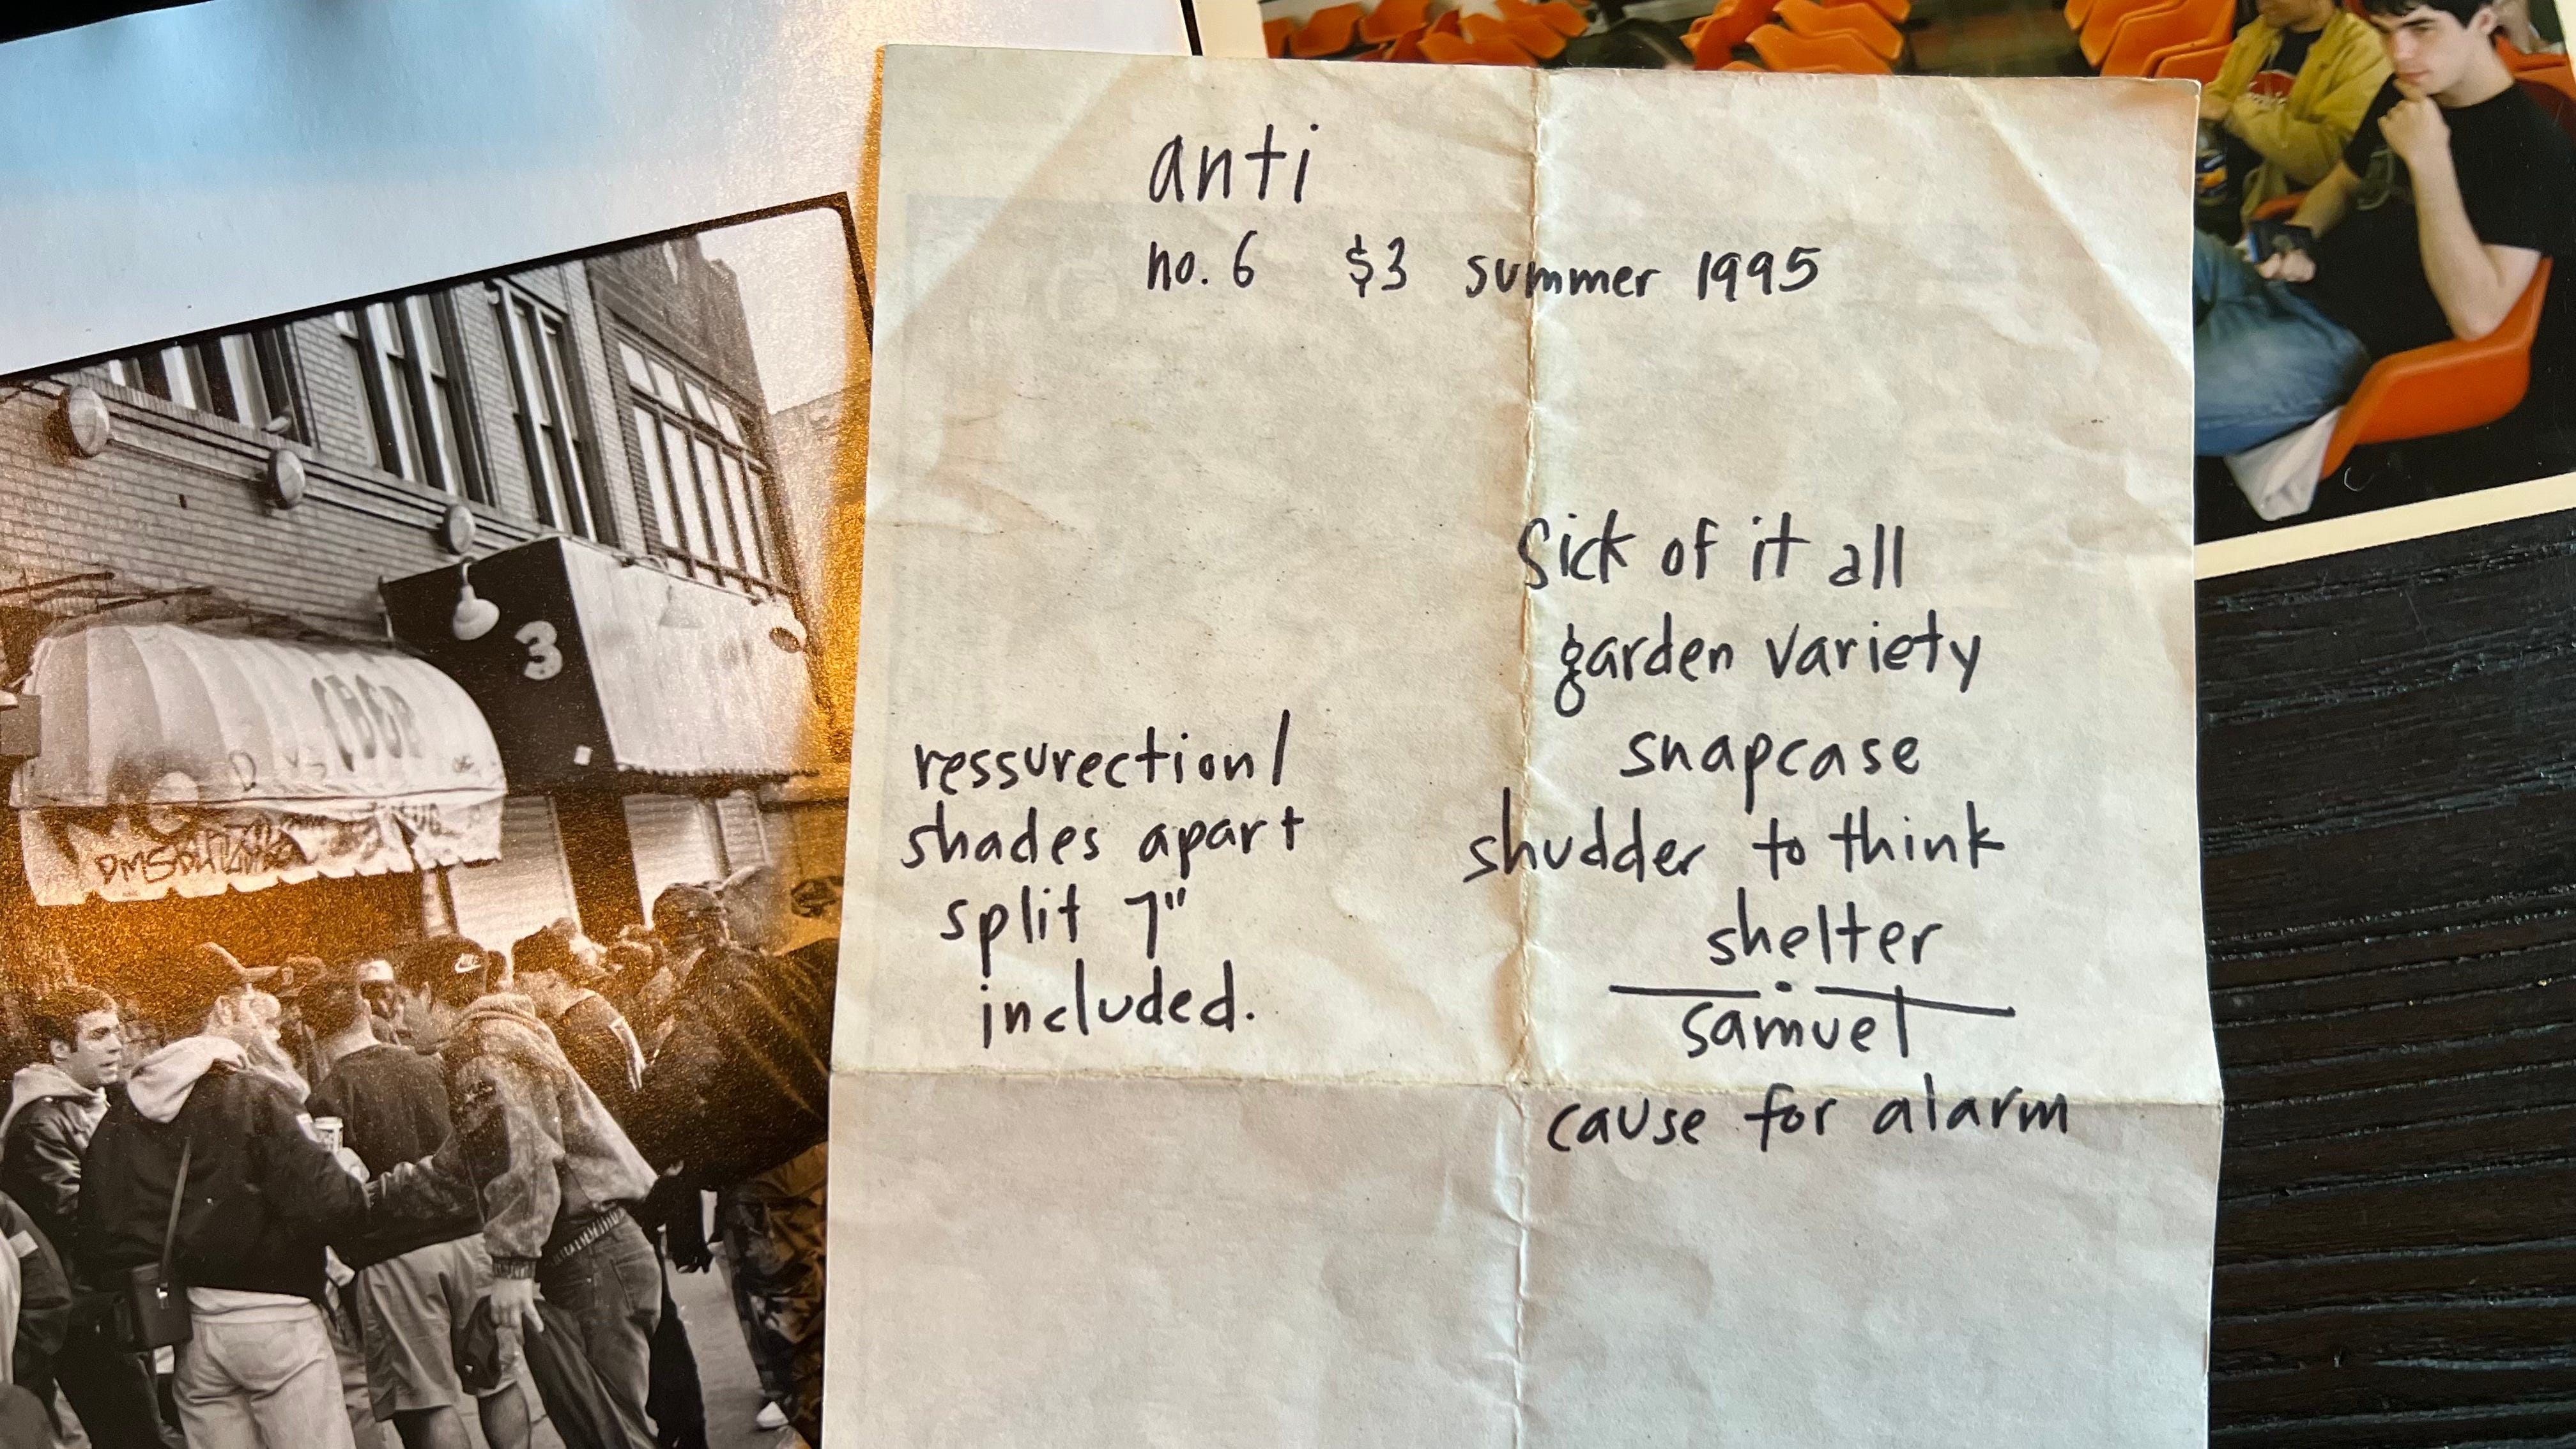 anti
no. 6 $3 summer 1995
sick of it all
garden variety
snapcase
shudder to think
shelter
samuel
cause for alarm
ressurection/
shades apart
split 7"
included.
3
CBGB